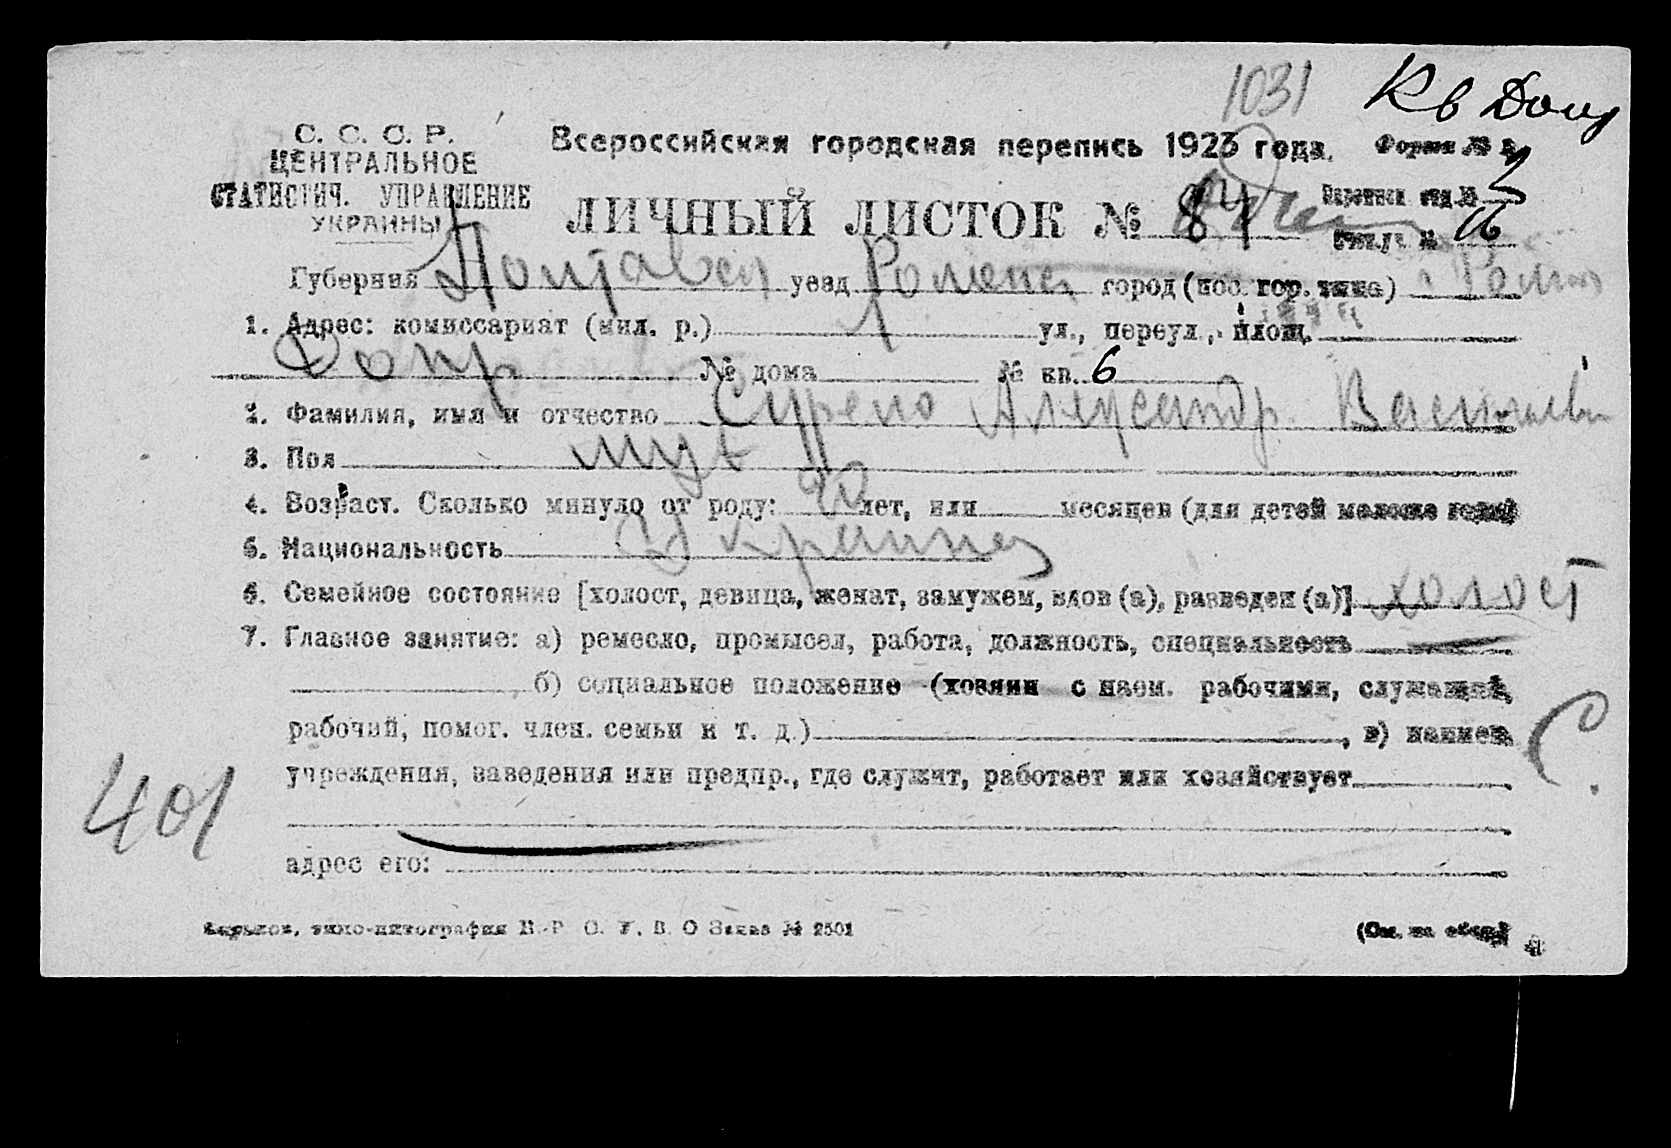 1031 Кв Допр
С. С. С. Р.
ЦЕНТРАЛЬНОЕ
СТАТИСТИЧ. УПРАВЛЕНИЕ
УКРАИНЫ
Всероссийская городская перепись 1923 года.
Форма №
ЛИЧНЫЙ ЛИСТОК № 84
отд. №
№ 16
Губерния Полтавск уезд Роменск город (пос. гор. типа) Ромны
1. Адрес: комиссариат (мил. р.) ул., переул., площ.
Допр № дома № кв. 6
2. Фамилия, имя и отчество Александр Васильев
3. Пол муж
4. Возраст. Сколько минуло от роду: лет, или месяцев (для детей моложе
5. Национальность Украинец
6. Семейное состояние [холост, девица, женат, замужем, вдов (а), разведен (а)] холост
7. Главное занятие: а) ремесло, промысел, работа, должность, специальность
б) социальное положение (хозяин с наем. рабочими, служащий,
рабочий, помог. член. семьи и т. д.) , в) наимен.
учреждения, заведения или предпр., где служит, работает или хозяйствует
401
адрес его:
Харьков, типо-литография Заказ № 2501
(См. на